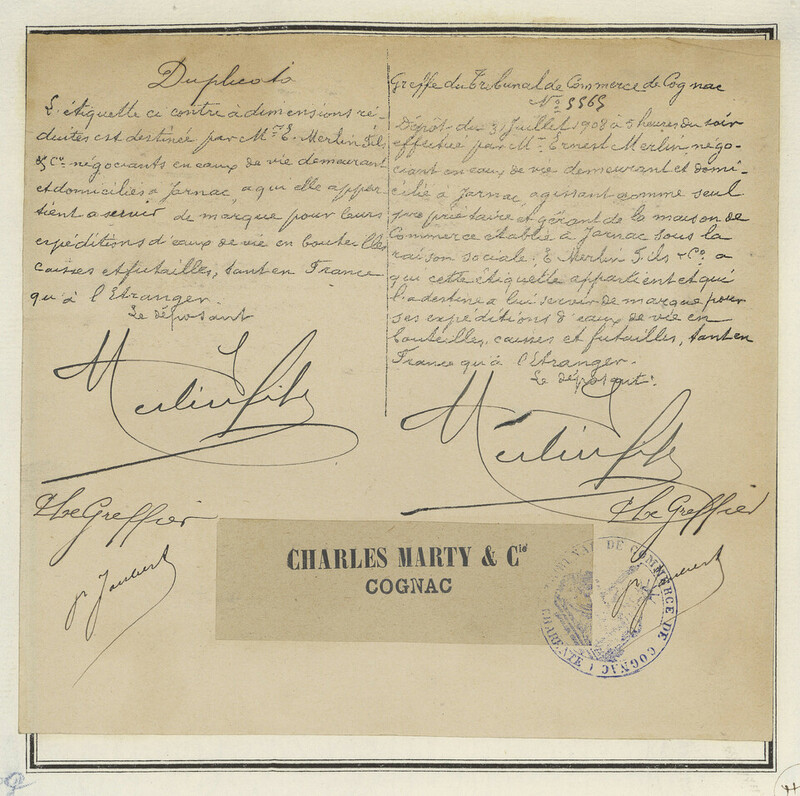 Duplicata
L'étiquette ci contre à dimensions ré-
duites est destinée par Mrs E. Merlin Fils
& Co négociants en eaux de vie demeurant
et domiciliés à Jarnac, a qui elle appar
tient a servir de marque pour leurs
expéditions d'eaux de vie en bouteilles
caisses et futailles, tant en France
qu'à l'Etranger.
Le déposant
Merlin Fils
Le Greffier
Greffe du Tribunal de Commerce de Cognac
No 5565
Dépôt du 31 Juillet 1908 à 5 heures du soir
effectué par Mr Ernest Merlin négo-
ciant en eaux de vie demeurant et domi-
cilié à Jarnac, agissant comme seul
propriétaire et gérant de la maison de
Commerce établie à Jarnac sous la
raison sociale. E. Merlin Fils & Co a
qui cette étiquette appartient et qui
l'a destine a lui servir de marque pour
ses expéditions d'eaux de vie en
bouteilles, caisses et futailles, tant en
France qu'à l'Etranger.
Le déposant.
Merlin Fils
Le Greffier
CHARLES MARTY & Cie
COGNAC
TRIBUNAL DE COMMERCE DE COGNAC
CHARENTE